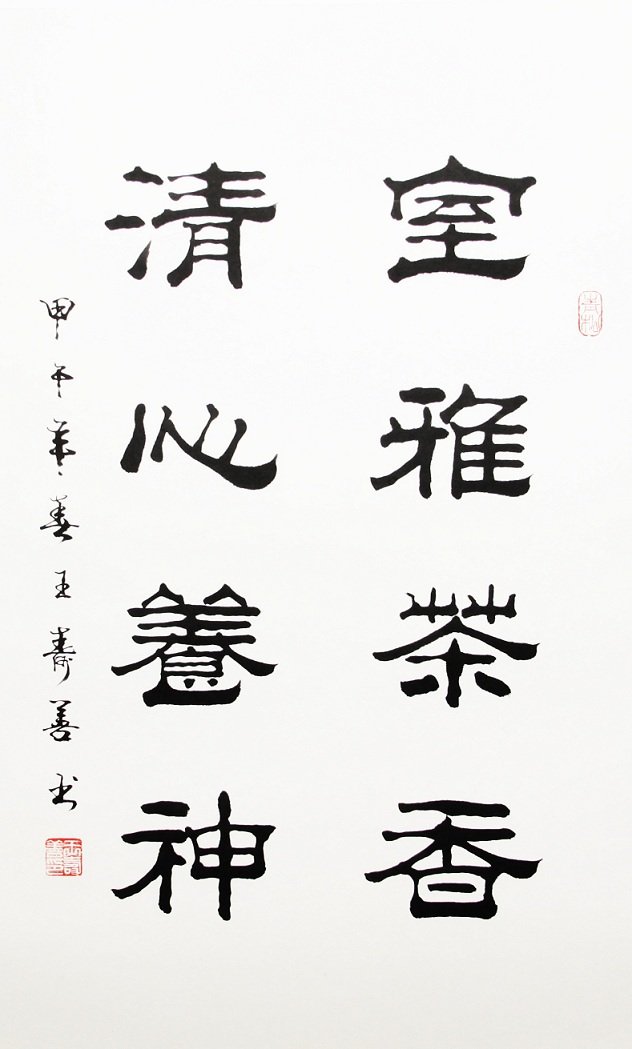 室雅茶香
清心養神
甲午年春王壽善书